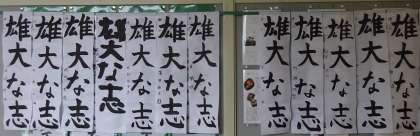 雄大な志
雄大な志
雄大な志
雄大な志
雄大な志
雄大な志
雄大な志
雄大な志
雄大な志
雄大な志
雄大な志
雄大な志